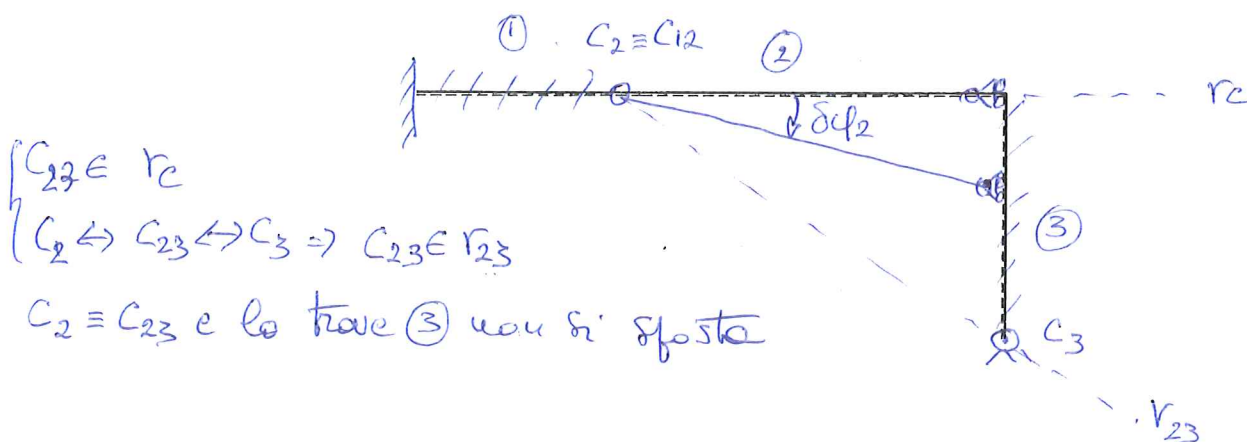 ① . C₂ ≡ C₁₂
②
rc
δφ₂
C₂₃ ∈ rc
C₂ ⇔ C₂₃ ⇔ C₃ ⇒ C₂₃ ∈ r₂₃
③
C₂ ≡ C₂₃ e la trave ③ non si sposta
C₃
r₂₃